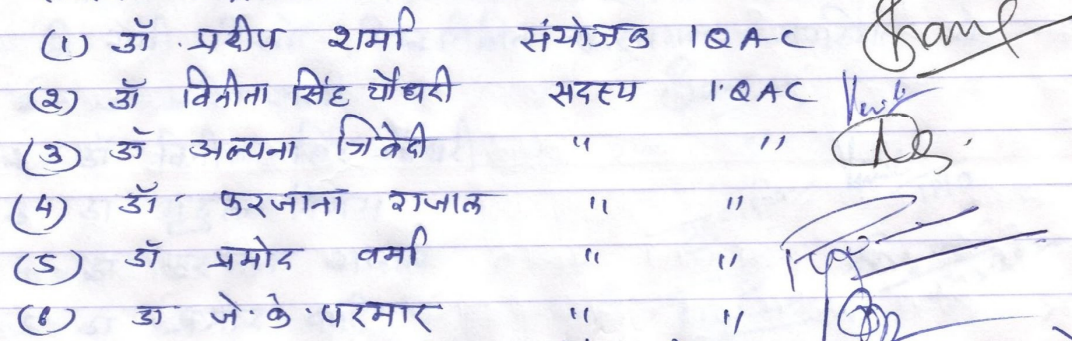 (1) डॉ. प्रदीप शर्मा संयोजक IQAC
(2) डॉ विनीता सिंह चौधरी सदस्य IQAC
(3) डॉ अल्पना त्रिवेदी " "
(4) डॉ. फरजाना गजाल " "
(5) डॉ प्रमोद वर्मा " "
(6) डॉ जे. के. परमार " "